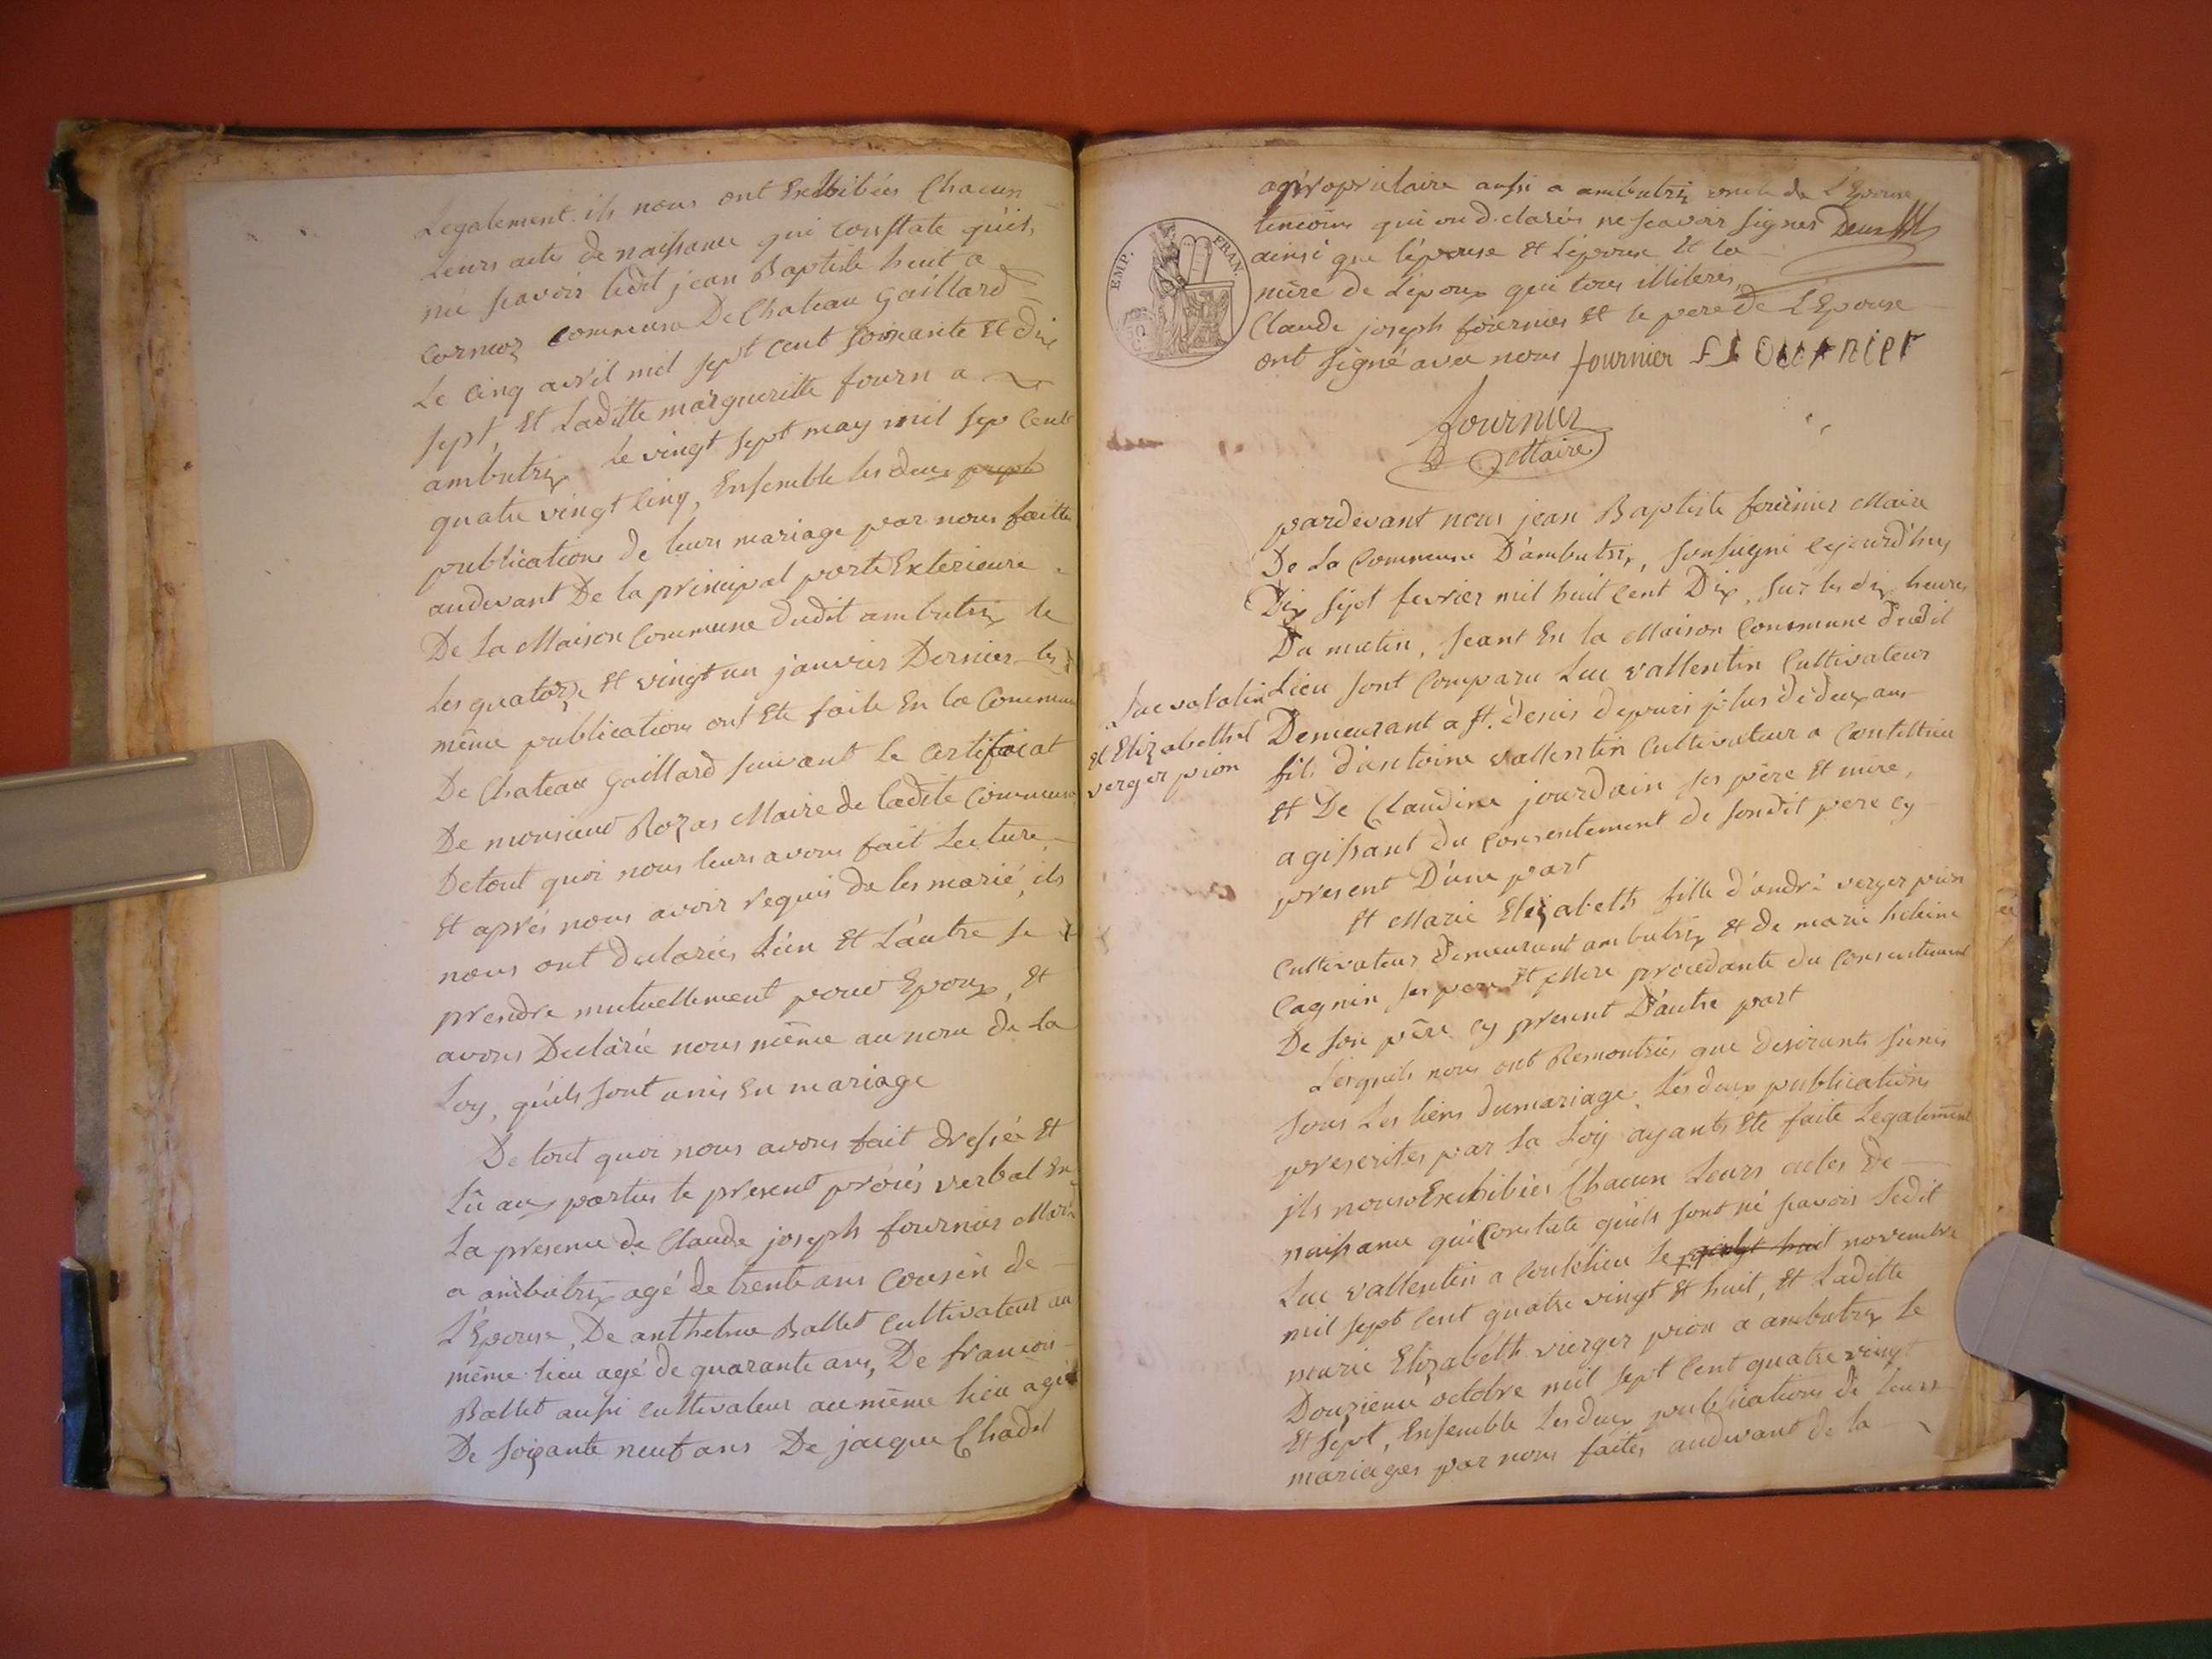 Legalement ils nous ont Exhibées Chacun
Leurs actes de naissance qui constate quils
né scavoir ledit jean Baptiste huit a
Cormoz commune De Chateau Gaillard
Le Cinq avril mil sept cent soixante Et dix
sept, Et Laditte margueritte fourn a
ambutrix le vingt sept may mil sep Cent
quatre vingt Cinq, Ensemble les deux
publications de leurs mariage par nous faittes
audevant De la principal porte Exterieure
De La Maison Commune dudit ambutrix le
Les quatorze Et vingt un janvier Dernier les
même publications ont Eté faite En la Commune
De Chateau Gaillard suivant le Certificat
De monsieur Rozas Maire de ladite Commune
De tout quoi nous leurs avons fait Lecture
Et aprés nous avoir requis de les marié, ils
nous ont declarées L'un Et L'autre se
prendre mutuellement pour Epoux, Et
avons Declarée nous même au nom de La
Loy, quils sont unis En mariage
De tout quoi nous avons fait dressée Et
Lû aux parties le present procés verbal En
La presence de Claude joseph fournier
a ambutrix agé de trente ans Cousin de
L'Epouse, De anthelme Ballet Cultivateur au
même lieu agé de quarante ans, De francois
Ballet aussi Cultivateur au même lieu agé
De soixante neuf ans De jacque Chadel
EMP. FRAN.
propriétaire aussi a ambutrix oncle de L'Epouse
temoins qui on declarés ne scavoir signer Deux
ainsi que l'épouse Et L'époux Et la
mère de L'époux qui tous illiteres,
Claude joseph fournier Et le pere de L'Epouse
ont signé avec nous fournier FI OURNIER
fournier
Maire
pardevant nous jean Baptiste fournier Maire
De La Commune D'ambutrix, soussigné cejourd'huy
Dix sept fevrier mil huit Cent Dix, sur les dix heures
Du matin, seant En la Maison Commune dudit
Lieu sont Comparu Luc vallentin Cultivateur
Demeurant a st. denis depuis plus de deux ans
fils d'antoine vallentin Cultivateur a
Et De Claudine jourdain ses père Et mère,
agissant du Consentement de sondit pere Cy
present D'une part
Luc valatin
et Elizabetth
verger pion
Et Marie Elizabeth fille d'andré verger pion
Cultivateur demeurant ambutrix Et de marie helaine
Cagnin ses pere Et Mere procedante du Consentement
De son père Cy present D'autre part
Lesquels nous ont Remontrées que desirants s'unir
sous Les liens du mariage Les deux publications
prescrites par La Loy ayants Eté faite Legalement
ils nous Exhibées Chacun Leurs actes de
naissance qui Constate quils sont né scavoir ledit
Luc vallentin a Le vingt huit novembre
mil sept Cent quatre vingt Et huit, Et Laditte
marie Elizabeth vierger pion a ambutrix Le
Douzieme octobre mil sept Cent quatre vingt
Et sept, Ensemble Les deux publications de leurs
mariages par nous faites audevant de la